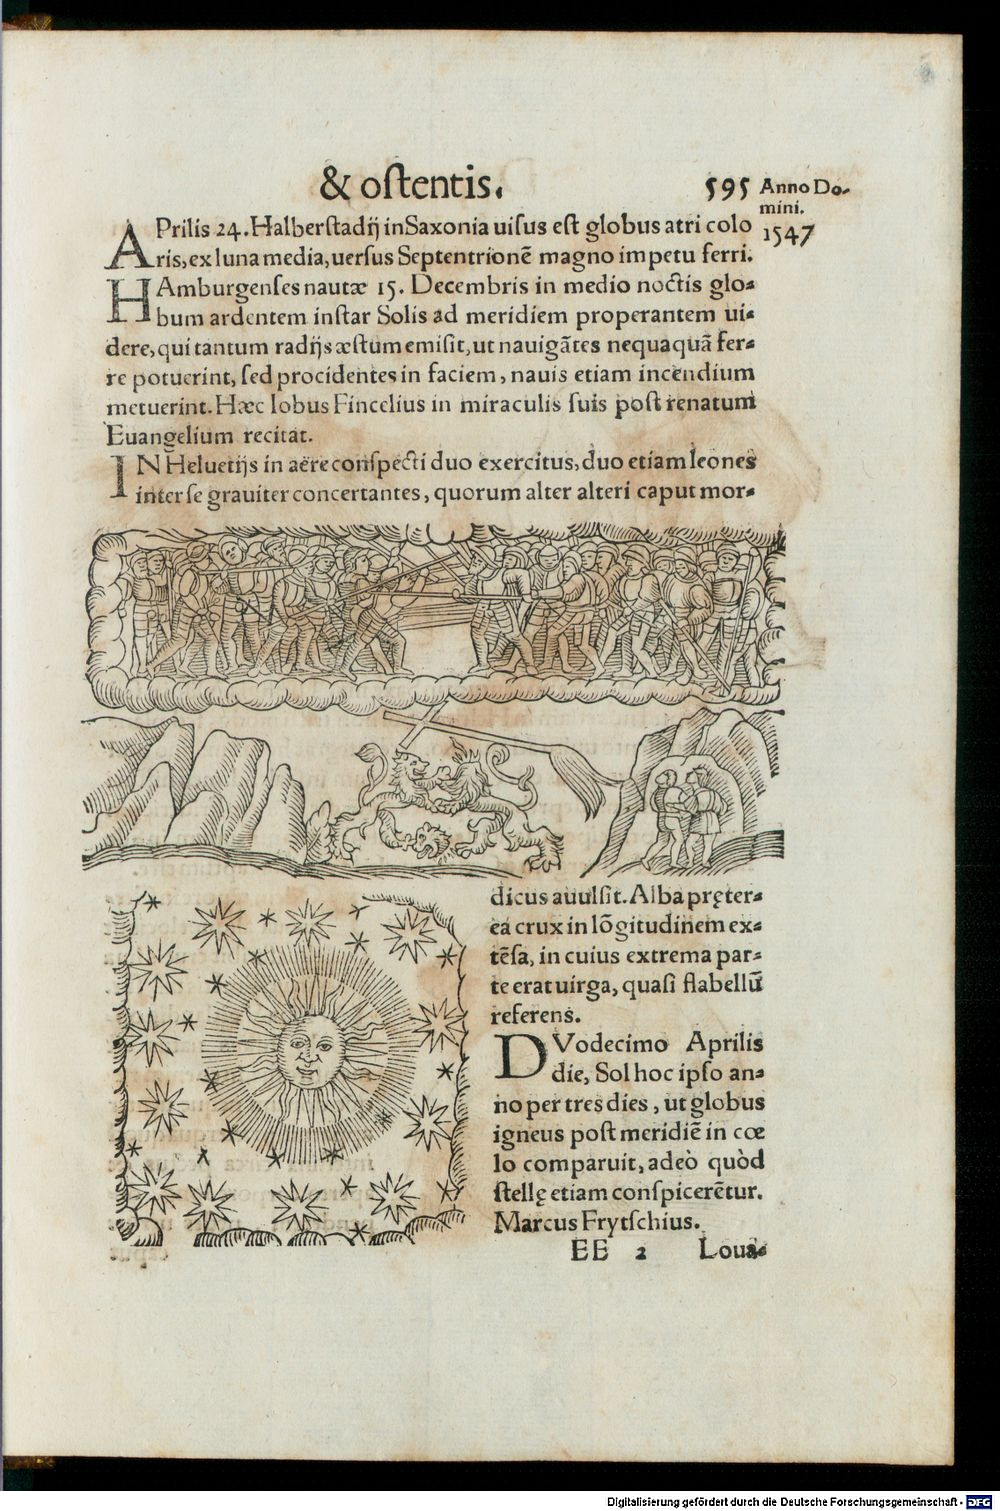 & oſtentis. 595 Anno Do-
mini.
1547
APrilis 24. Halberſtadĳ in Saxonia uiſus eſt globus atri colo
ris, ex luna media, uerſus Septentrionẽ magno impetu ferri.
HAmburgenſes nautæ 15. Decembris in medio noctis glo-
bum ardentem inſtar Solis ad meridiem properantem ui-
dere, qui tantum radĳs æſtum emiſit, ut nauigãtes nequaquã fer-
re potuerint, ſed procidentes in faciem, nauis etiam incendium
metuerint. Hæc Iobus Fincelius in miraculis ſuis poſt renatum
Euangelium recitat.
IN Heluetĳs in aëre conſpecti duo exercitus, duo etiam leones
inter ſe grauiter concertantes, quorum alter alteri caput mor-
dicus auulſit. Alba pręter-
ea crux in lõgitudinem ex-
tẽſa, in cuius extrema par-
te erat uirga, quaſi flabellũ
referens.
DVodecimo Aprilis
die, Sol hoc ipſo an-
no per tres dies, ut globus
igneus poſt meridiẽ in cœ
lo comparuit, adeò quòd
ſtellę etiam conſpicerẽtur.
Marcus Frytſchius.
EE 2 Loua-
Digitalisierung gefördert durch die Deutsche Forschungsgemeinschaft - DFG